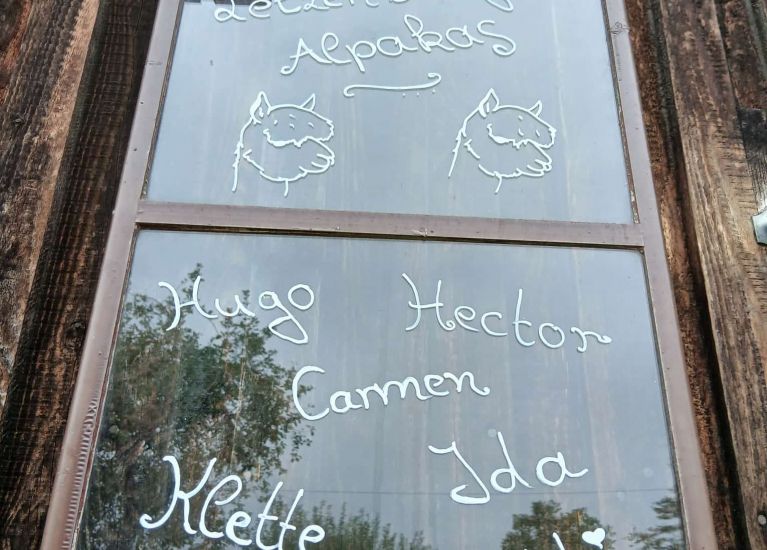 Alpakas
Hugo Hector
Carmen
Ida
Klette